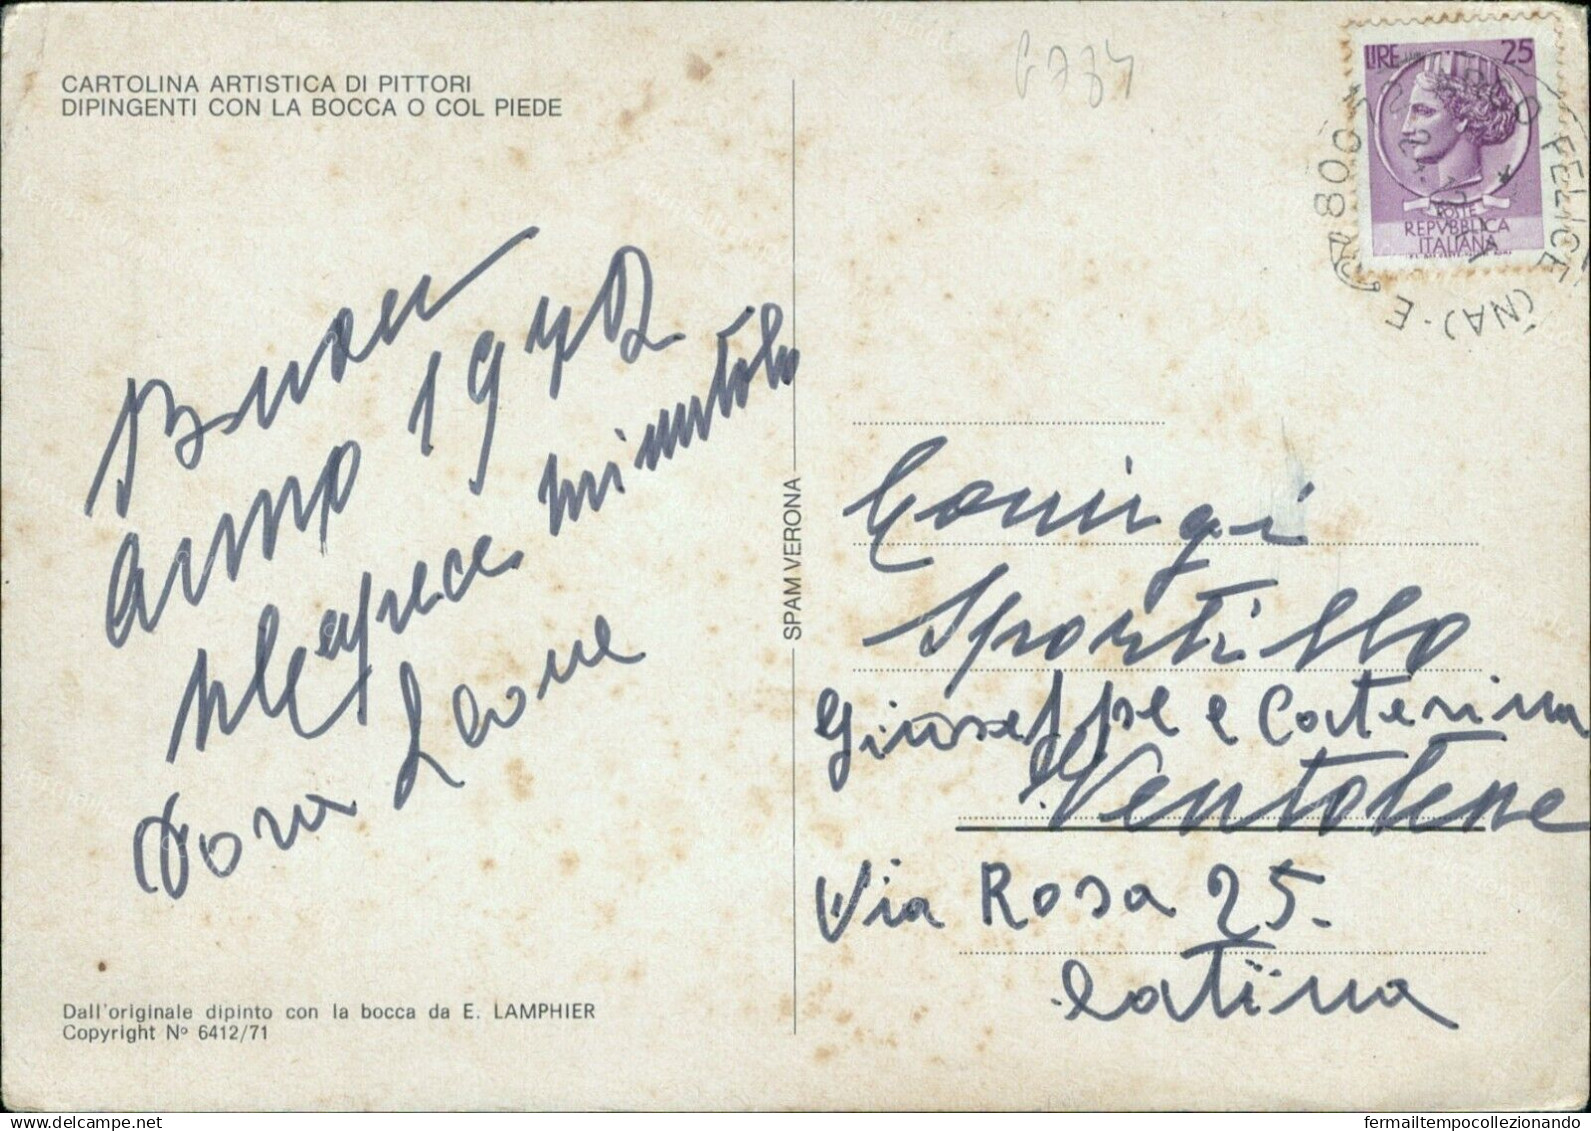 CARTOLINA ARTISTICA DI PITTORI
DIPINGENTI CON LA BOCCA O COL PIEDE
LIRE 25
POSTE
REPVBBLICA
ITALIANA
80030
FELICE (NA). E
Buon
anno 1972
minutolo
Dora Leone
SPAM VERONA
Coniugi
Sportillo
Giuseppe e Caterina
Ventotene
Via Rosa 25.
Latina
Dall'originale dipinto con la bocca da E. LAMPHIER
Copyright Nº 6412/71
fermailtempocollezionando